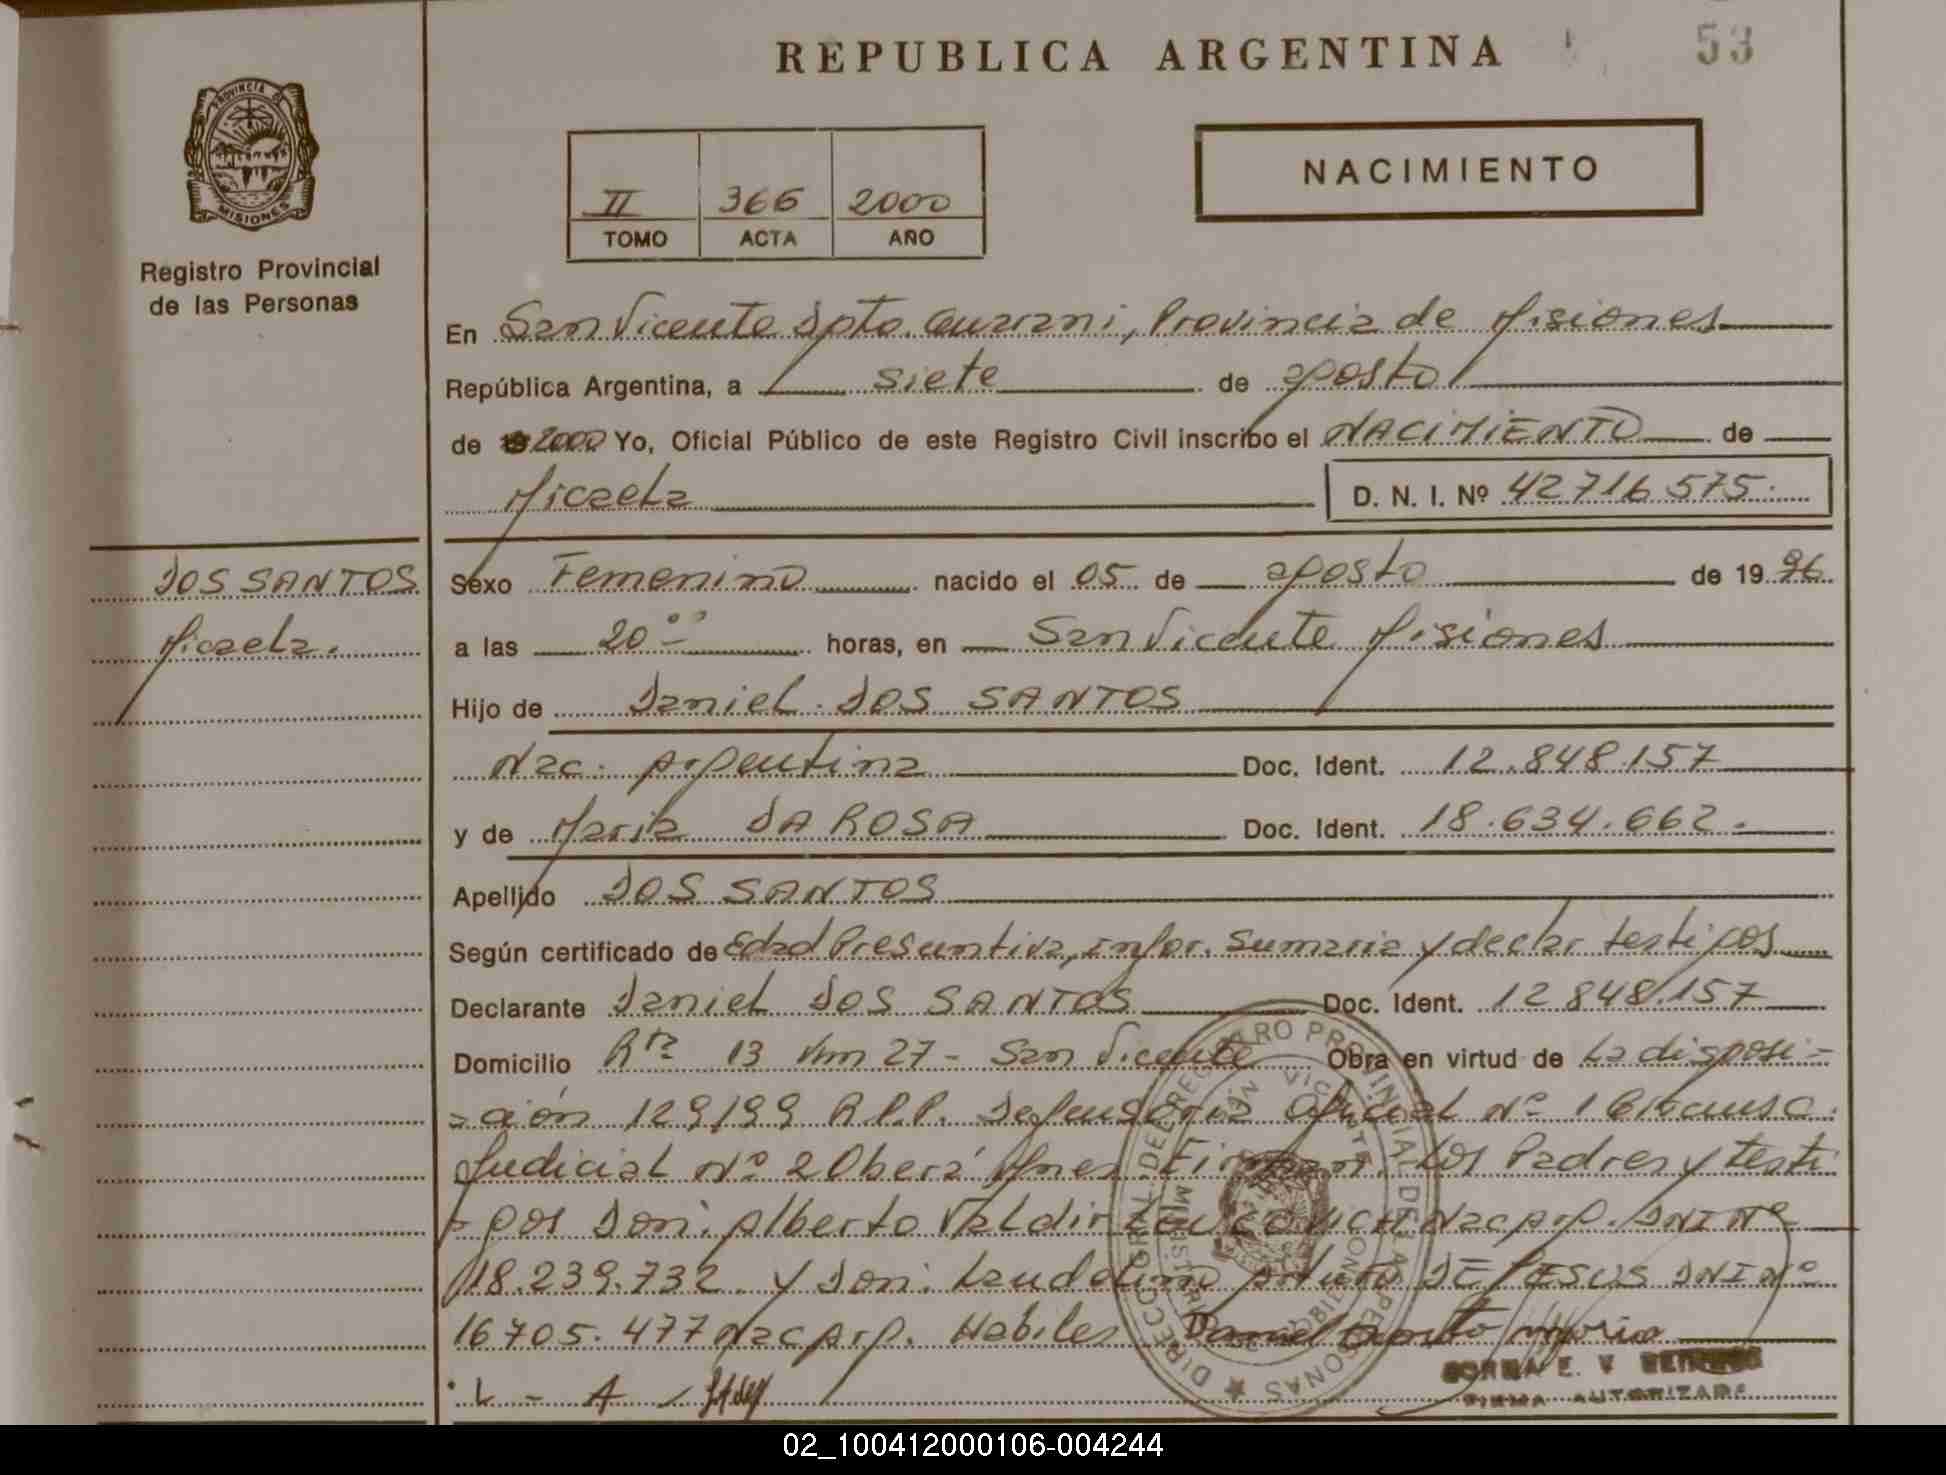 REPUBLICA ARGENTINA
53
PROVINCIA DE
MISIONES
Registro Provincial
de las Personas
II 366 2000
TOMO ACTA AÑO
NACIMIENTO
En San Vicente Dpto. Guarani, Provincia de Misiones
República Argentina, a siete de agosto
de 2000 Yo, Oficial Público de este Registro Civil inscribo el NACIMIENTO de
Micaela D. N. I. Nº 42716575
DOS SANTOS
Micaela.
Sexo Femenino nacido el 05 de agosto de 19 96
a las 20 horas, en San Vicente Misiones
Hijo de Daniel DOS SANTOS
Nac. Argentina Doc. Ident. 12.848.157
y de Maria DA ROSA Doc. Ident. 18.634.662.
Apellido DOS SANTOS
Según certificado de Edad Presuntiva, infor. sumaria y declar testigos
Declarante Daniel DOS SANTOS Doc. Ident. 12.848.157
Domicilio Rta 13 Km 27 - San Vicente Obra en virtud de La disposi-
-ción 129/99 R.P.P. Defensoria Oficial Nº 1
Judicial Nº 2 Oberá Mnes. Firman Los Padres y testi
-gos Don: Alberto Valdir Nac Arg. DNI Nº
18.239.732 y Don: Laudelino DE JESUS DNI Nº
16705.477 Nac Arg. Habiles
FIRMA AUTORIZADA
02_100412000106-004244